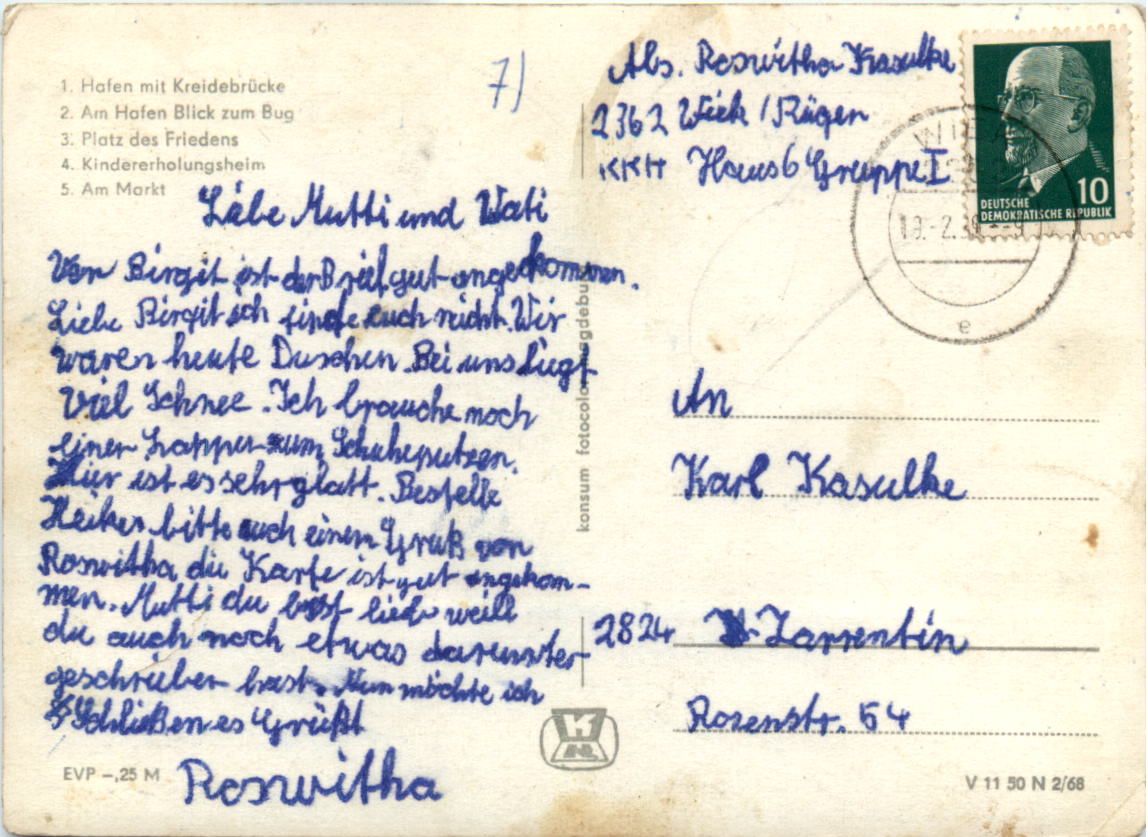 1. Hafen mit Kreidebrücke
2. Am Hafen Blick zum Bug
3. Platz des Friedens
4. Kindererholungsheim
5. Am Markt
7)
Abs. Roswitha Kasulke
2362 Wiek / Rügen
KKH Haus 6 Gruppe I
DEUTSCHE
DEMOKRATISCHE REPUBLIK
10
WIEK
e
Liebe Mutti und Vati
Von Birgit ist der Brief gut angekommen.
Liebe Birgit ich finde euch nicht. Wir
waren heute Duschen. Bei uns liegt
Viel Schnee. Ich brauche noch
einen Lappen zum Schuheputzen.
Hier ist es sehr glatt. Bestelle
Heike bitte auch einen Gruß von
Roswitha die Karte ist gut angekom-
men. Mutti du bist lieb weill
du auch noch etwas darunter
geschrieben hast. Nun möchte ich
Schließen es Grüßt
Roswitha
An
Karl Kasulke
2824 Zarrentin
Rosenstr. 54
konsum fotocolor magdeburg
EVP –,25 M
V 11 50 N 2/68